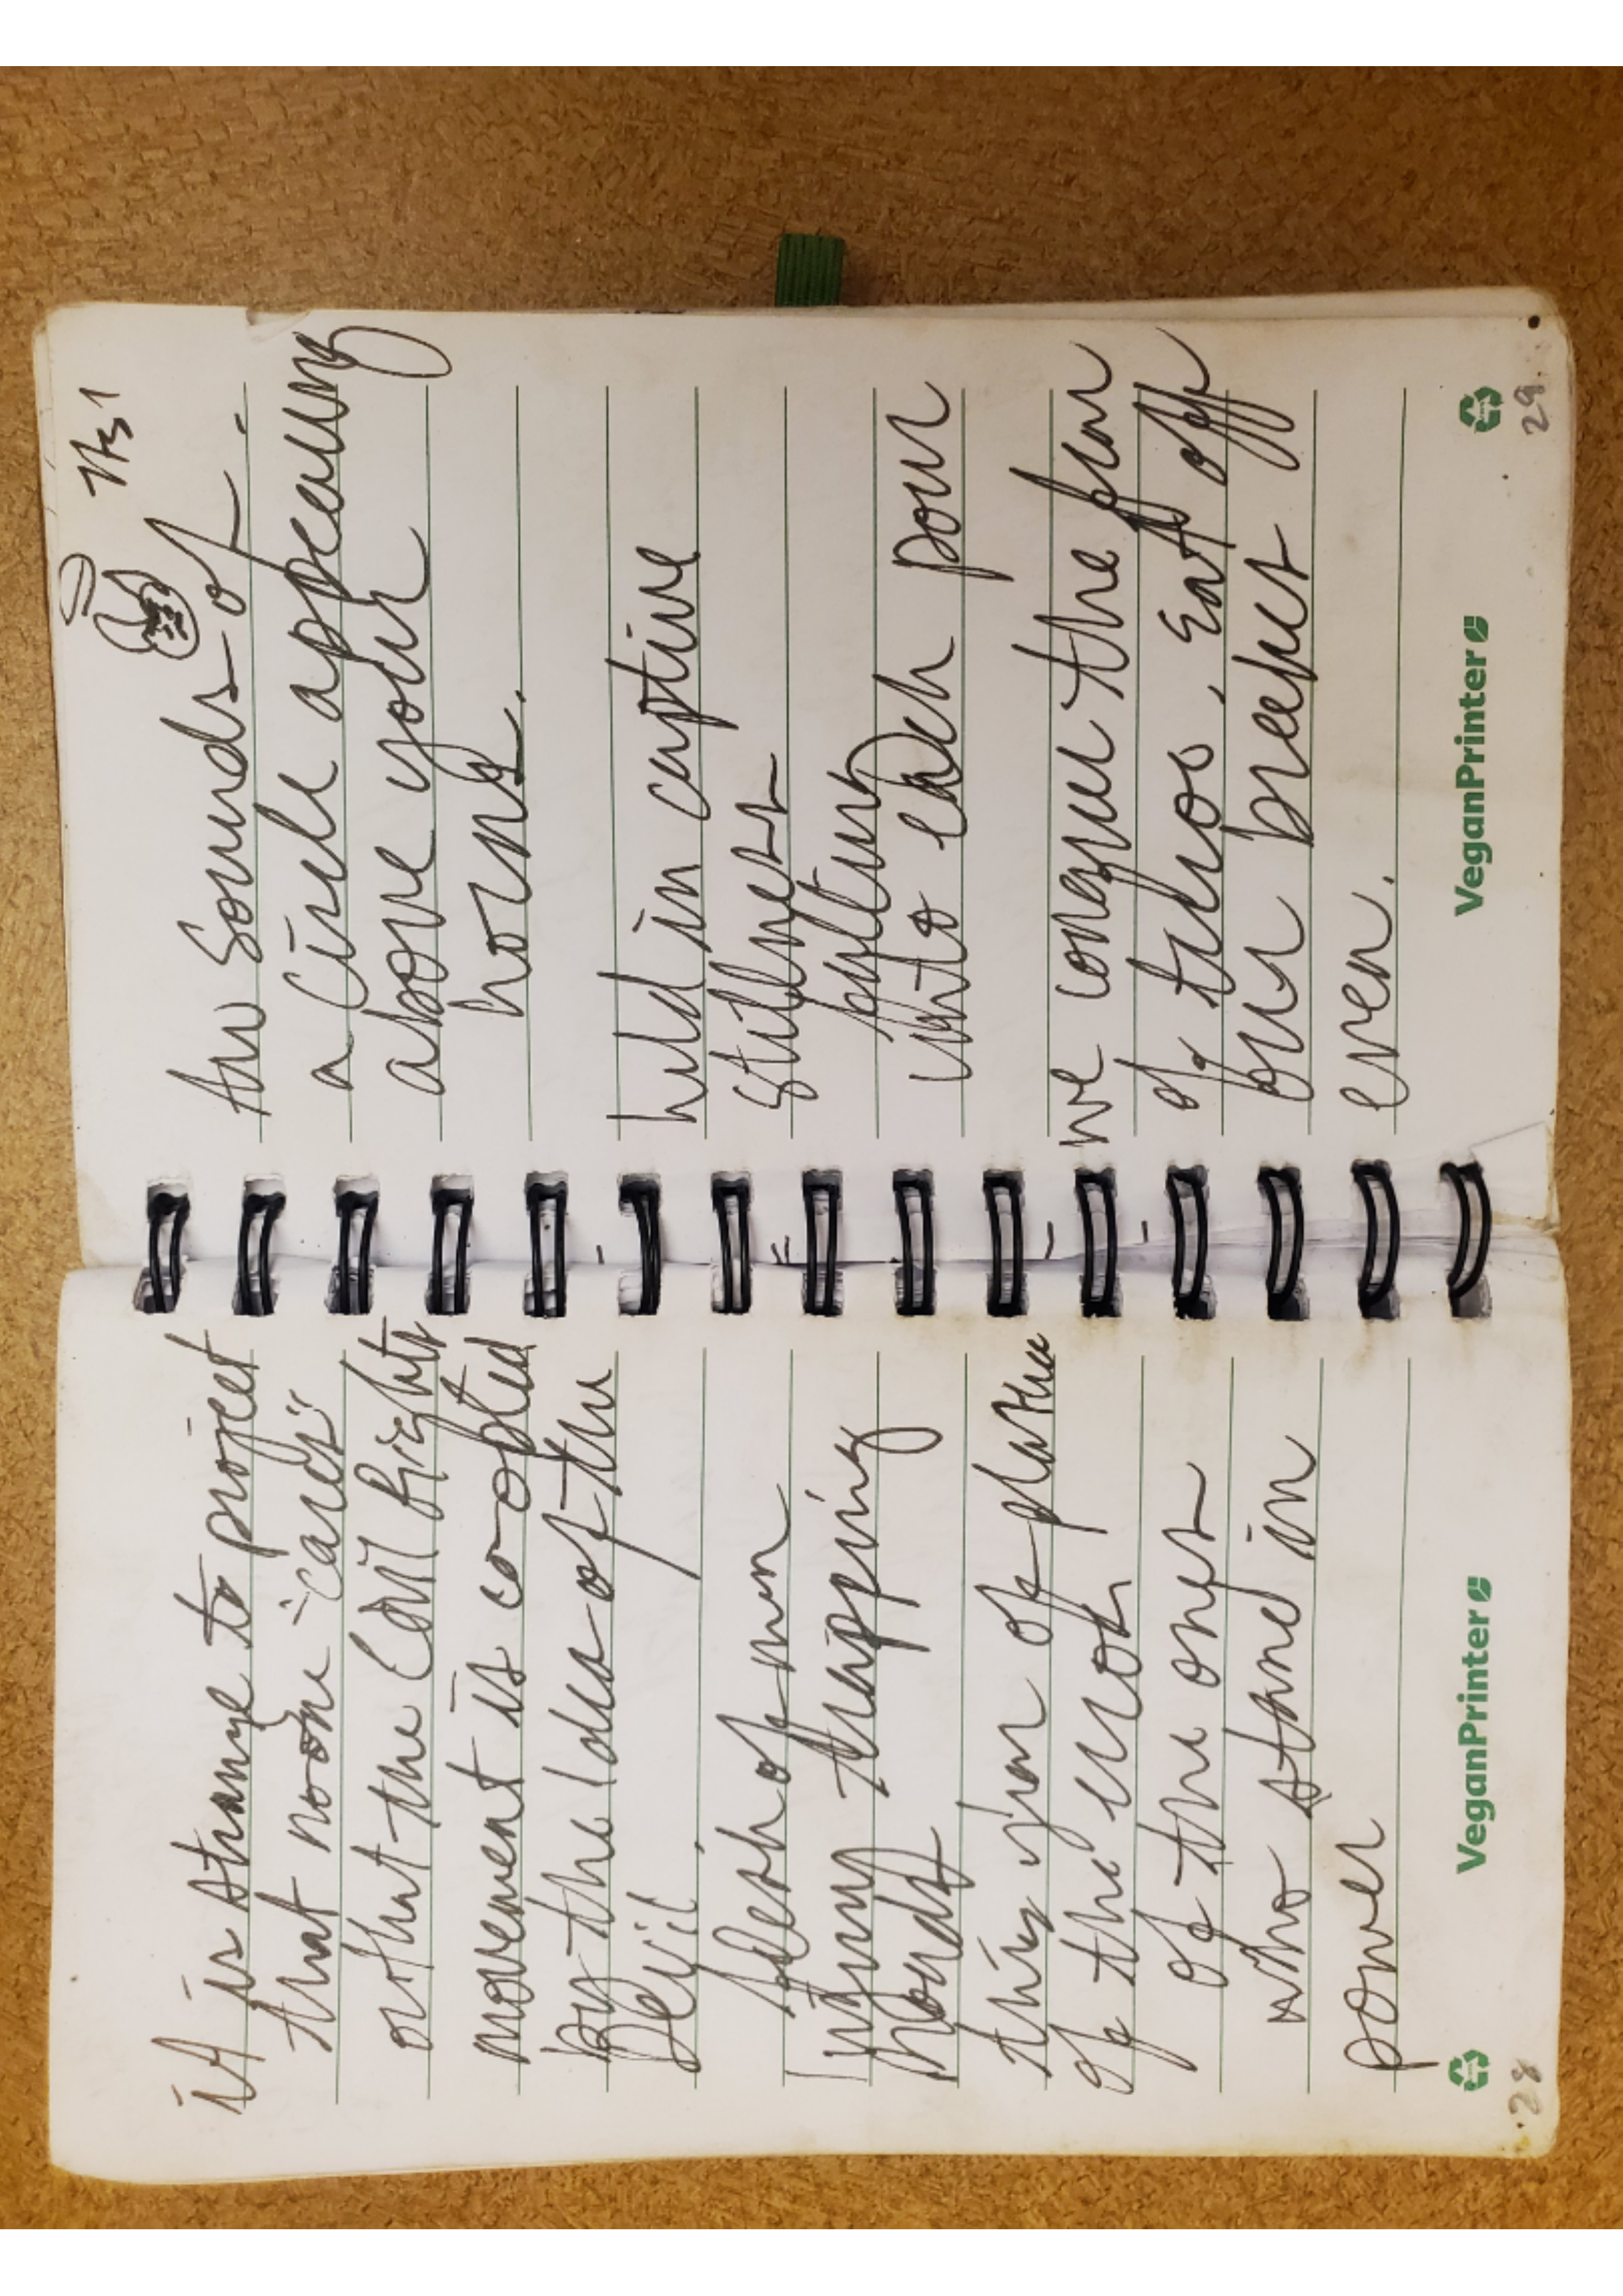 it is strange to project
that no one "cares"
or that the Civil Rights
movement is co-opted
by the idea of the
Devil.
flesh of men
trapping
this year of
of the
of the ones
who stand in
power
VeganPrinter
28
Sounds of
a Circle appearing
above your
horns.
held in captive
stillness
into each pour
we conquer the fear
of taboo. Eat off
our breasts
even.
VeganPrinter
29